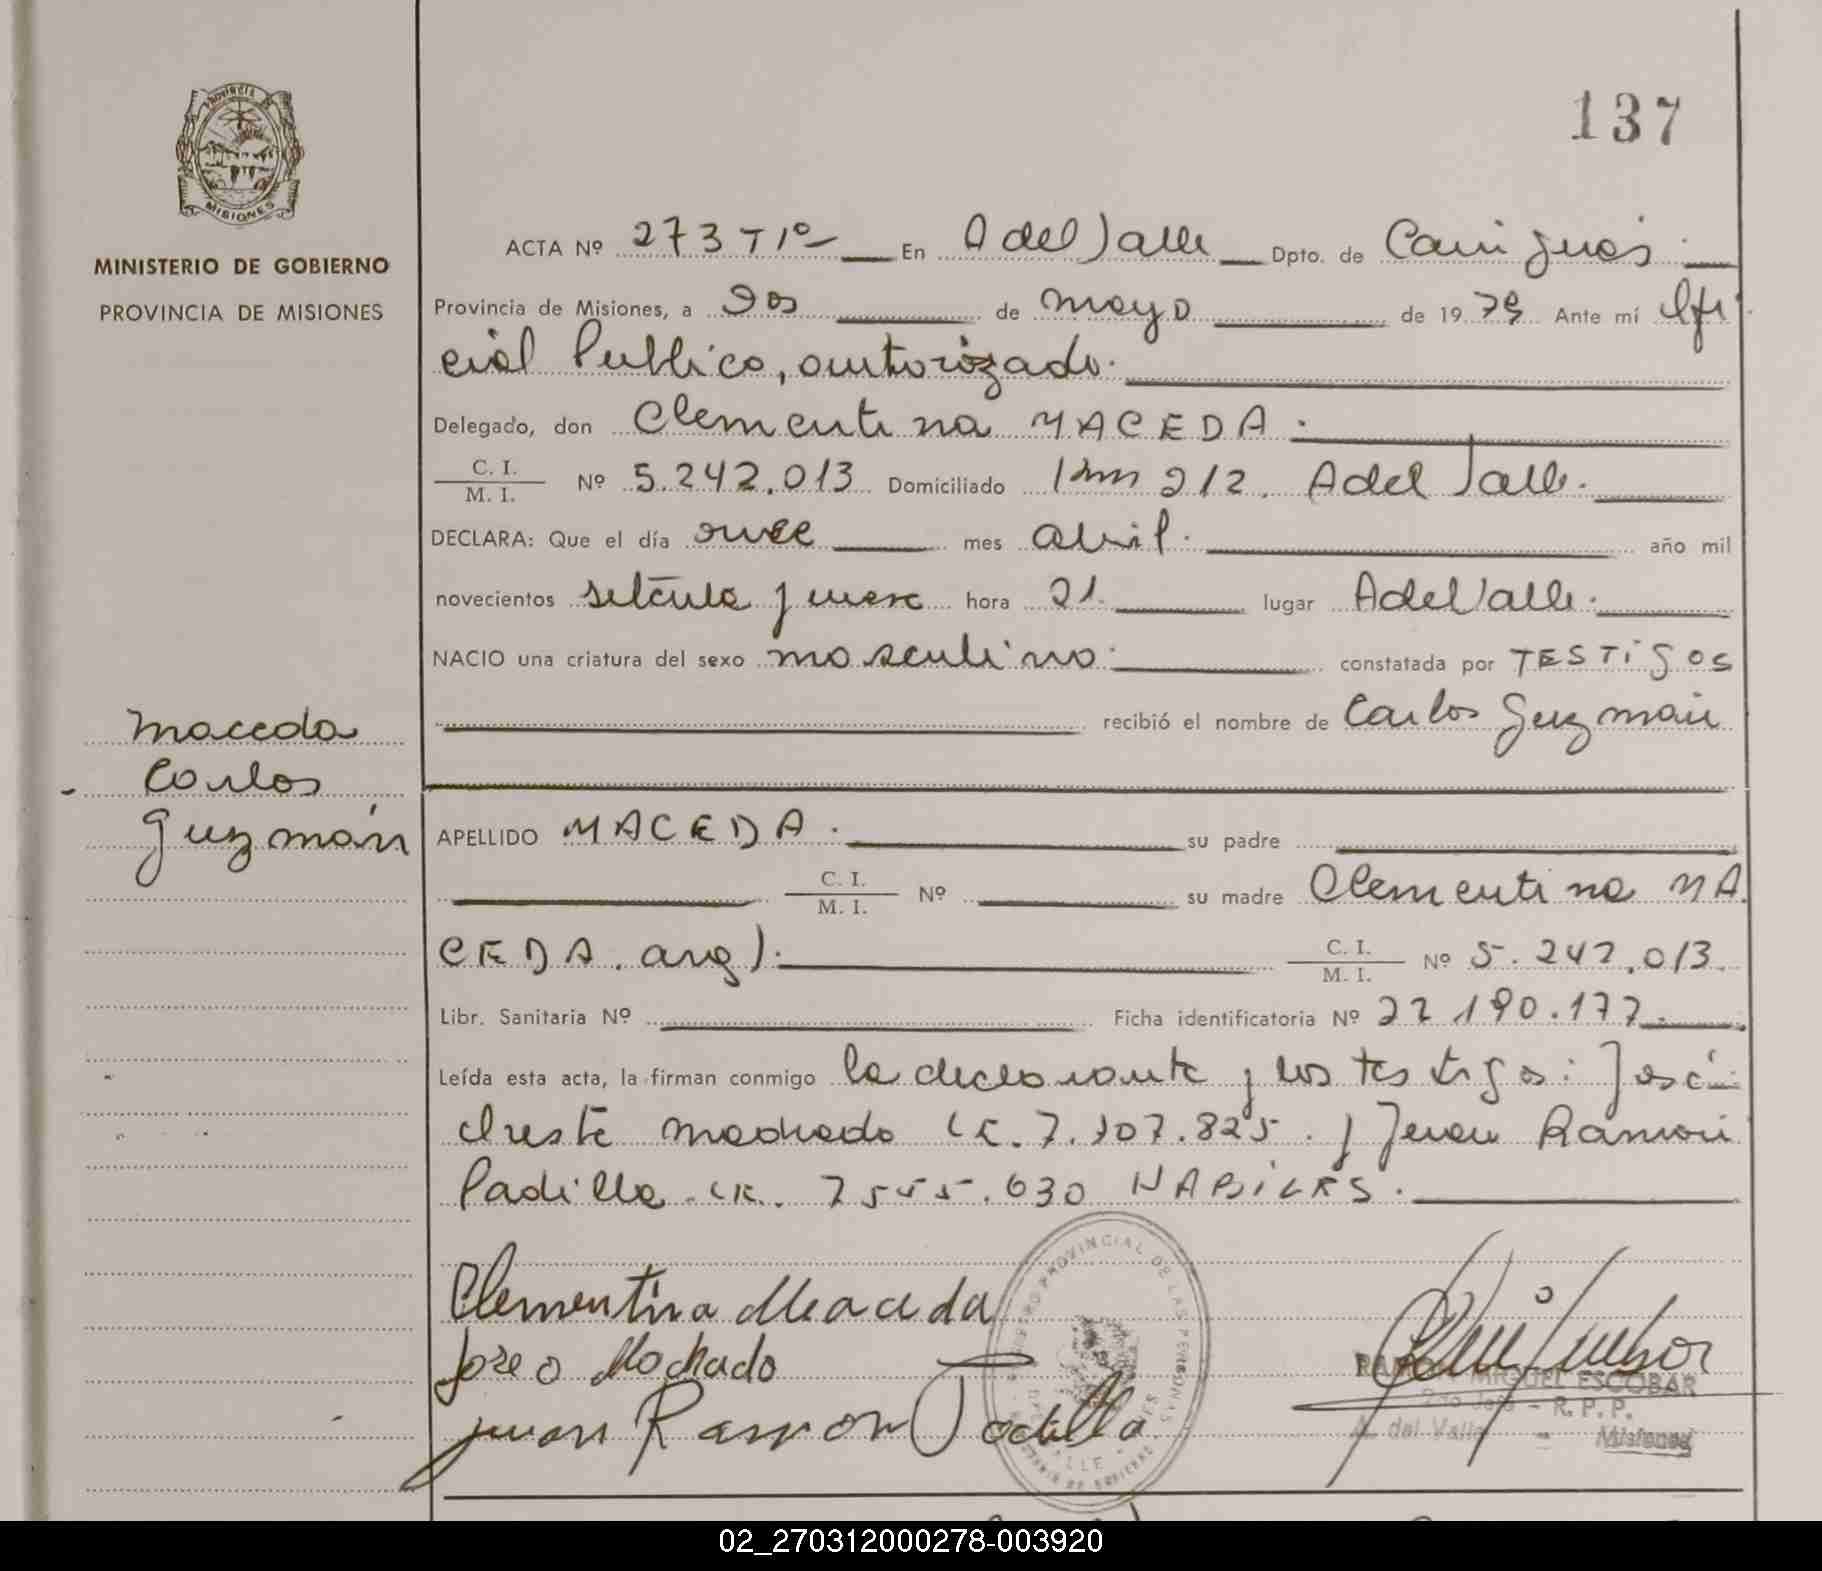 137
PROVINCIA DE
MISIONES
MINISTERIO DE GOBIERNO
PROVINCIA DE MISIONES
ACTA Nº 273 T 1º En A del Valle Dpto. de Cainguás
Provincia de Misiones, a dos de mayo de 1979 Ante mí Ofi
cial Publico, autorizado.
Delegado, don Clementina MACEDA.
C. I.
M. I. Nº 5.242.013 Domiciliado Km 212. A del Valle.
DECLARA: Que el día once mes abril. año mil
novecientos setenta y nueve hora 21. lugar A del Valle.
NACIO una criatura del sexo masculino. constatada por TESTiGos
recibió el nombre de Carlos Guzmán
Maceda
Carlos
Guzmán
APELLIDO MACEDA. su padre
C. I.
M. I. Nº su madre Clementina MA
CEDA. arg). C. I.
M. I. Nº 5.242.013.
Libr. Sanitaria Nº Ficha identificatoria Nº 22 190.177.
Leída esta acta, la firman conmigo la declarante y los testigos: José
Oreste Machado LE. 7.107.825. y Juan Ramon
Padilla. LE. 7555.030 HABiLES.
Clementina Maceda
Jose O Machado
Juan Ramon Padilla
REGISTRO PROVINCIAL DE LAS PERSONAS
MIGUEL ESCOBAR
R. P. P.
A. del Valle - Misiones
02_270312000278-003920